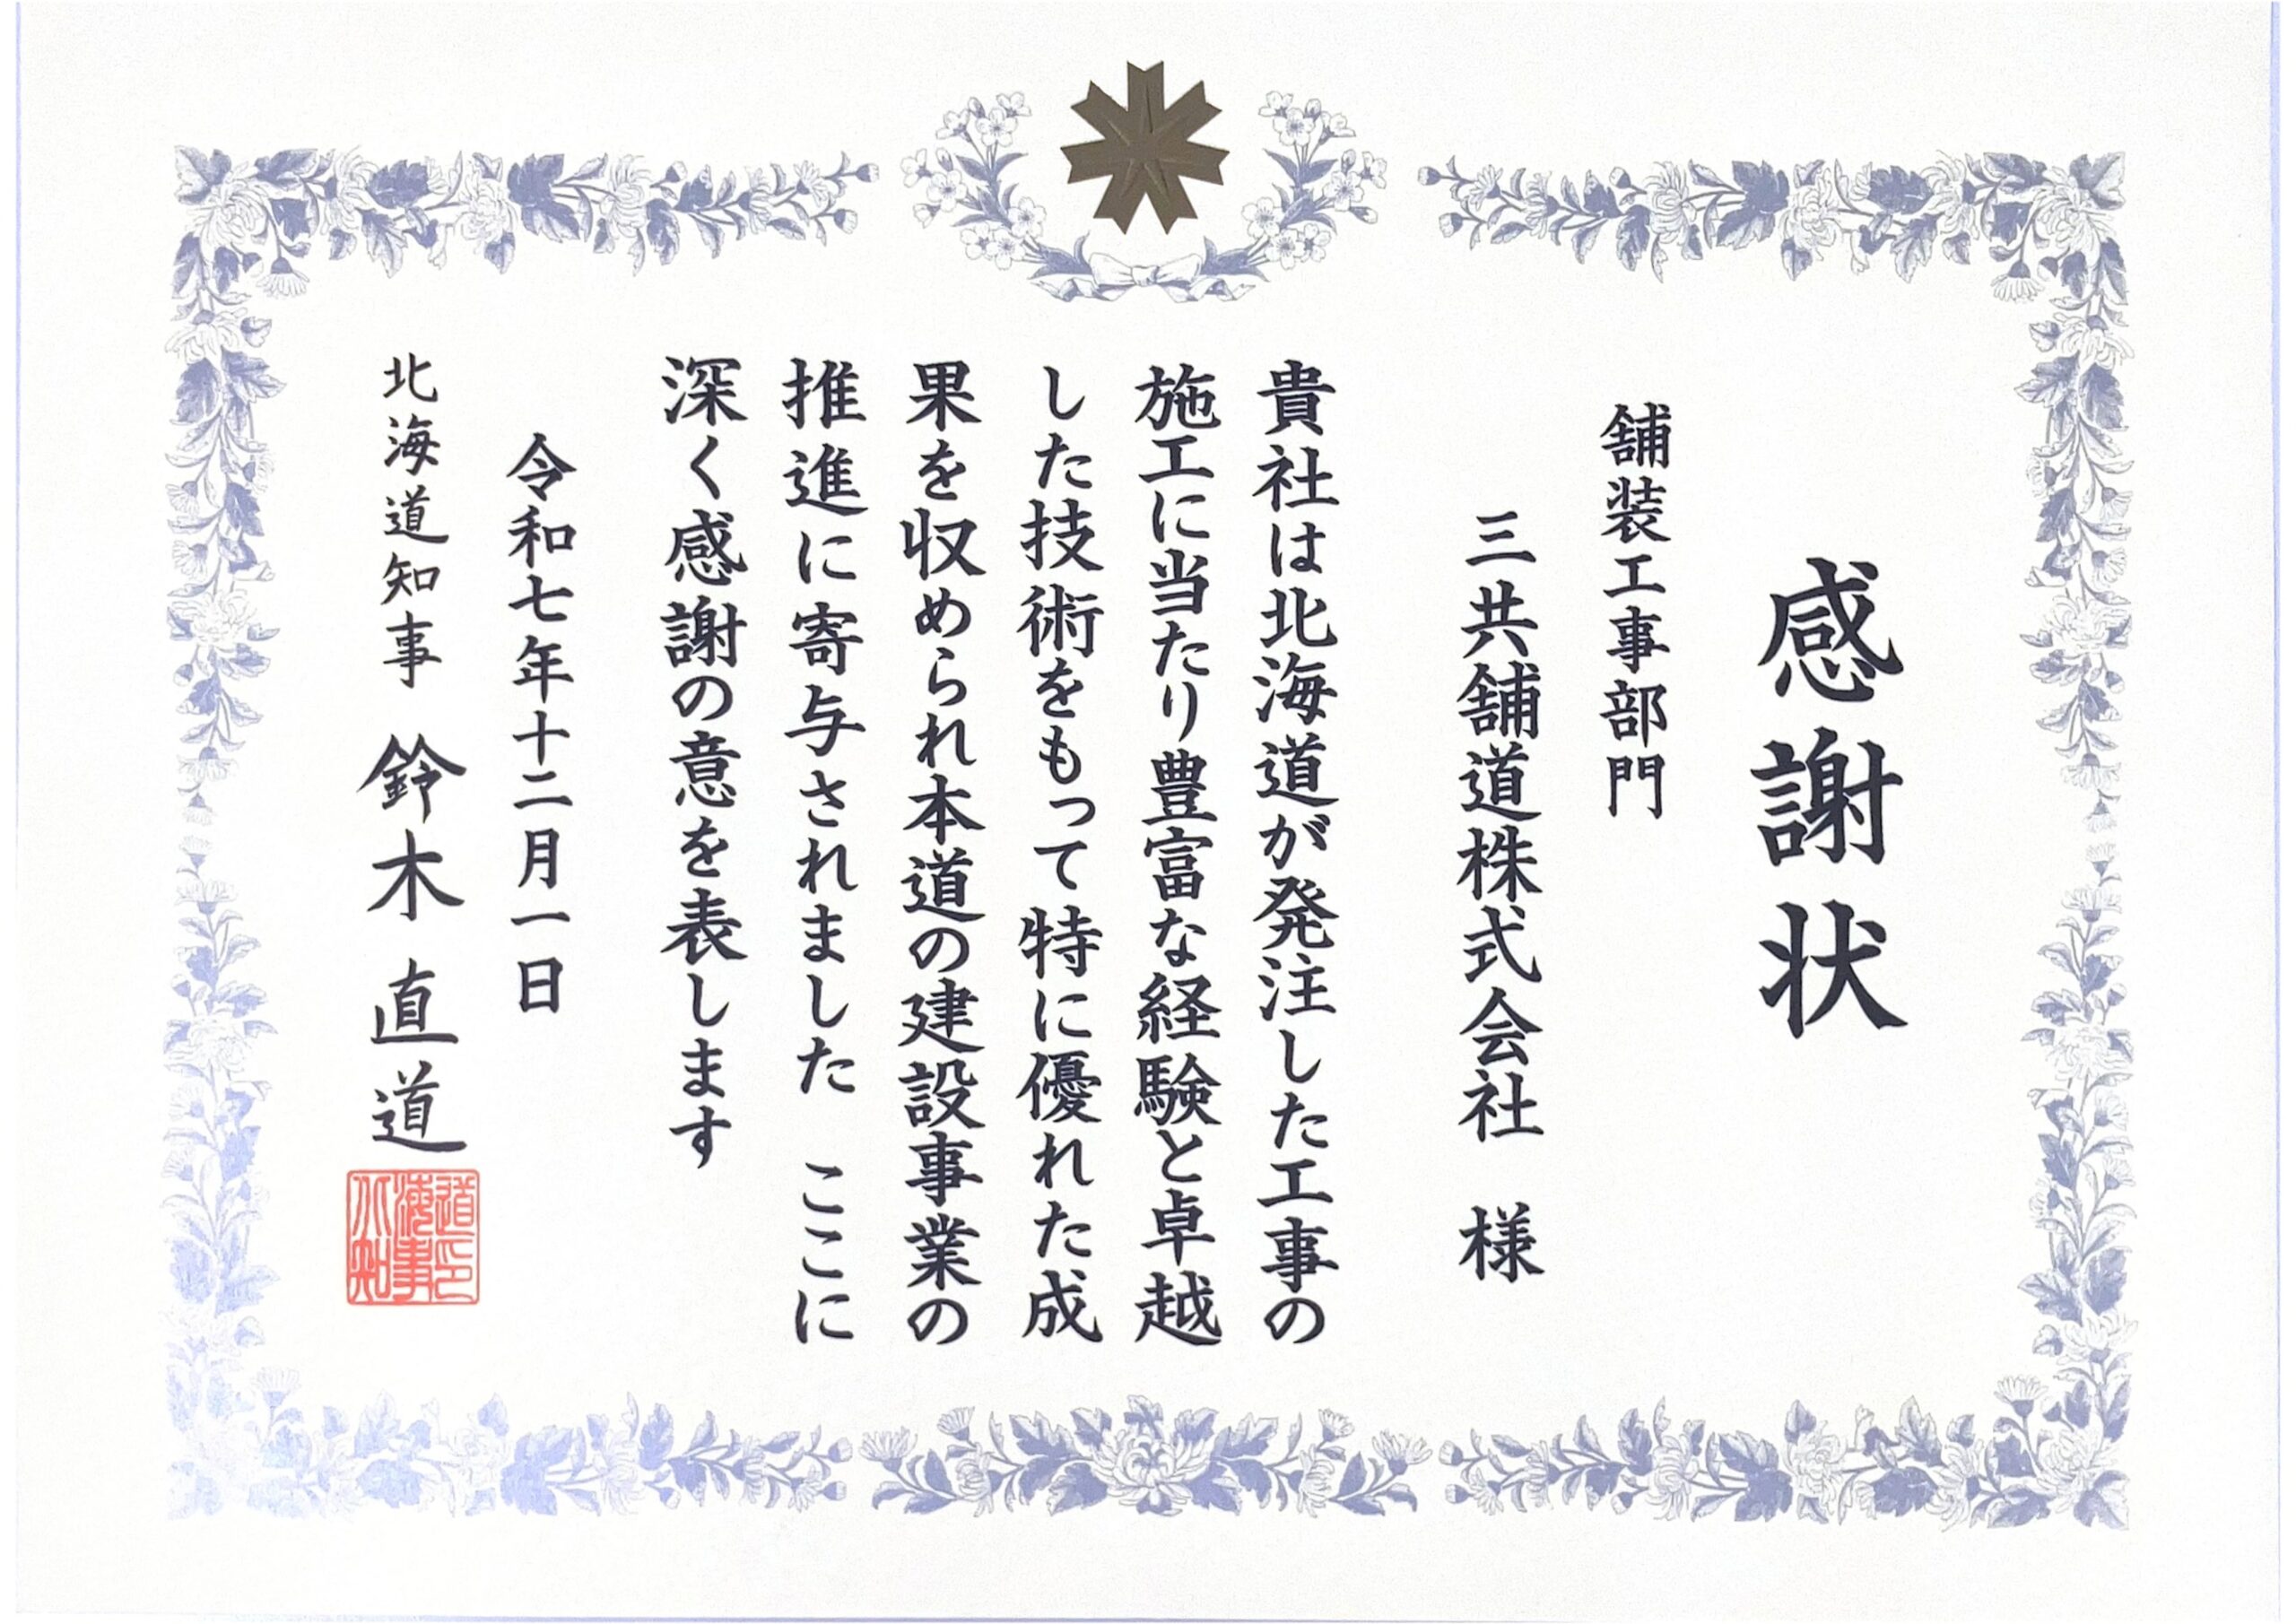 感謝状
舗装工事部門
三共舗道株式会社　様
貴社は北海道が発注した工事の
施工に当たり豊富な経験と卓越
した技術をもって特に優れた成
果を収められ本道の建設事業の
推進に寄与されました　ここに
深く感謝の意を表します
令和七年十二月一日
北海道知事　鈴木直道
北海道知事印